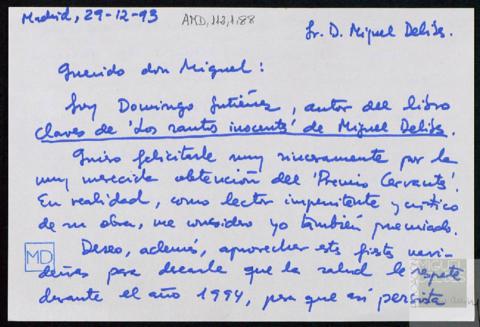 Madrid, 29-12-93
AMD,112,1,88
Sr. D. Miguel Delibes
Querido don Miguel:
Soy Domingo Gutiérrez, autor del libro
Claves de 'Los santos inocentes' de Miguel Delibes.
Quiero felicitarle muy sinceramente por la
muy merecida obtención del 'Premio Cervantes'.
En realidad, como lector impenitente y crítico
de su obra, me considero yo también premiado.
Deseo, además, aprovechar estas fiestas navi-
deñas para desearle que la salud le respete
durante el año 1994, para que así persista
MD